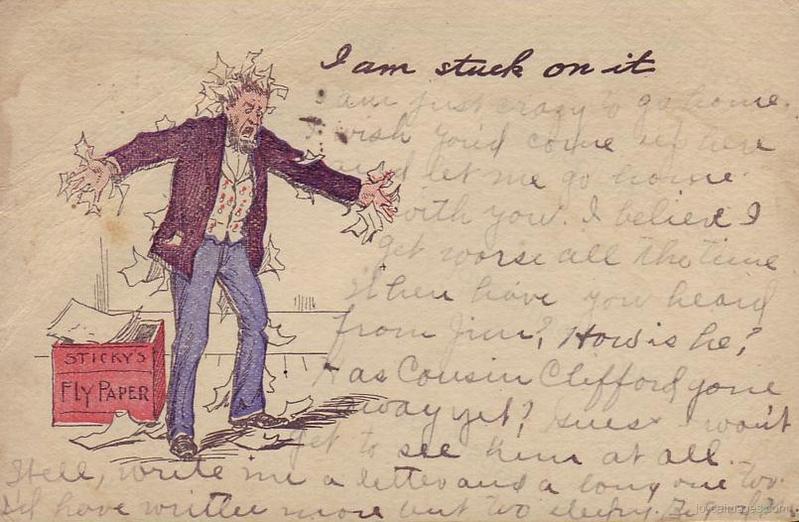 I am stuck on it
I am just crazy to go home.
I wish you'd come up here
and let me go home
with you. I believe I
get worse all the time
When have you heard
from Jim? How is he?
Has Cousin Clifford gone
away yet? Guess I won't
get to see him at all.
STICKY'S
FLY PAPER
Well, write me a letter and a long one too.
I'd have written more but too sleepy.